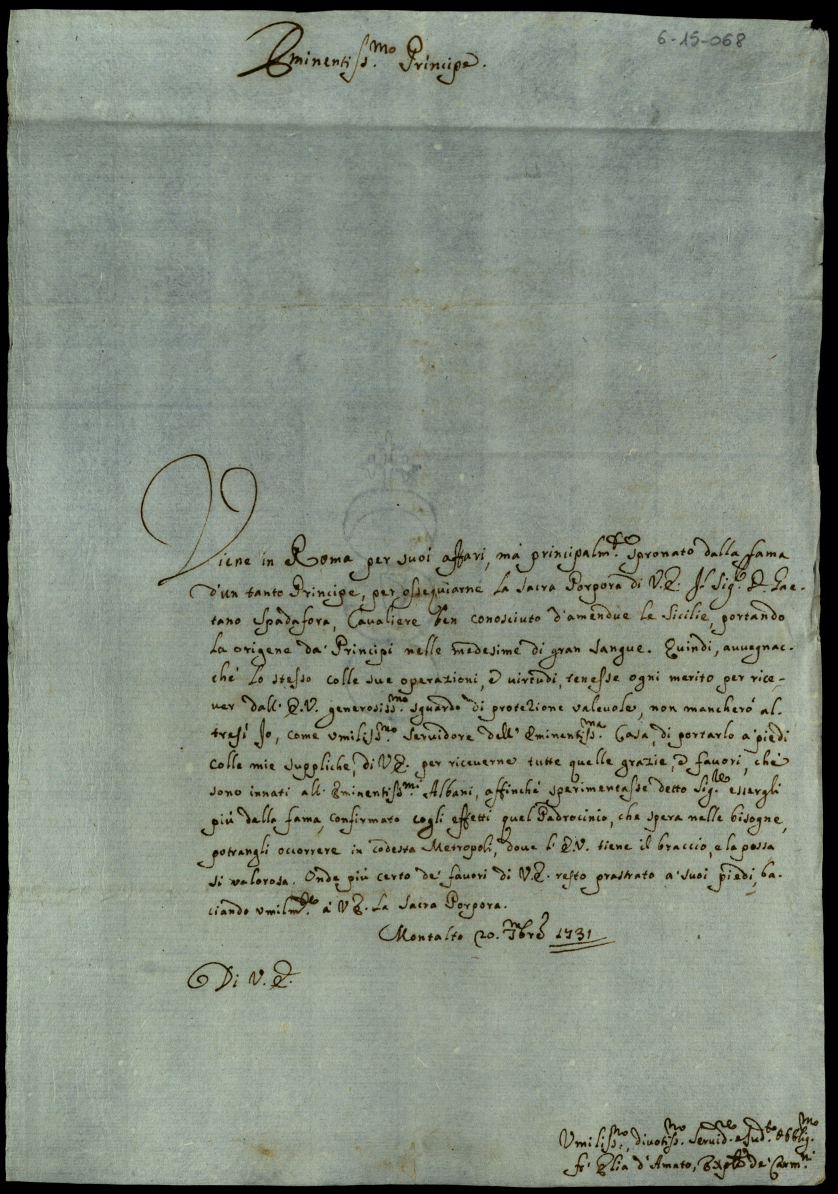 6-15-068
Eminentiss.mo Principe.
Viene in Roma per suoi affari, mà principalm.te spronato dalla fama
d'un tanto Principe, per ossequiarne la sacra Porpora di V.E. Il Sig.r D. Gae-
tano Spadafora, Cavaliere ben conosciuto d'amendue le Sicilie, portando
la origene da' Principi nelle medesime di gran sangue. Quindi, avvegnac-
chè lo stesso colle sue operazioni, e virtudi, tenesse ogni merito per rice-
ver dall'E.V. generosiss.mo sguardo di protezione valevole, non mancherò al-
tresì Io, come umiliss.mo servidore dell'Eminentiss.ma Casa, di portarlo a' piedi
colle mie suppliche, di V.E. per riceverne tutte quelle grazie, e favori, che
sono innati all'Eminentiss.mi Albani, affinchè sperimentasse detto Sig.re essergli
più dalla fama, confirmato cogli effetti quel Padrocinio, che spera nelle bisogne,
potrangli occorrere in codesta Metropoli, dove l'E.V. tiene il braccio, e la possa
sì valorosa. Onde più certo de' favori di V.E. resto prastrato a' suoi piedi, ba-
ciando umilm.te à V.E. la sacra Porpora.
Montalto 20. 1731
Di V.E.
Umiliss.mo, divotiss.mo Servid.re e Sud.to Obblig.mo
fr. Elia d'Amato, de' Carm.ni